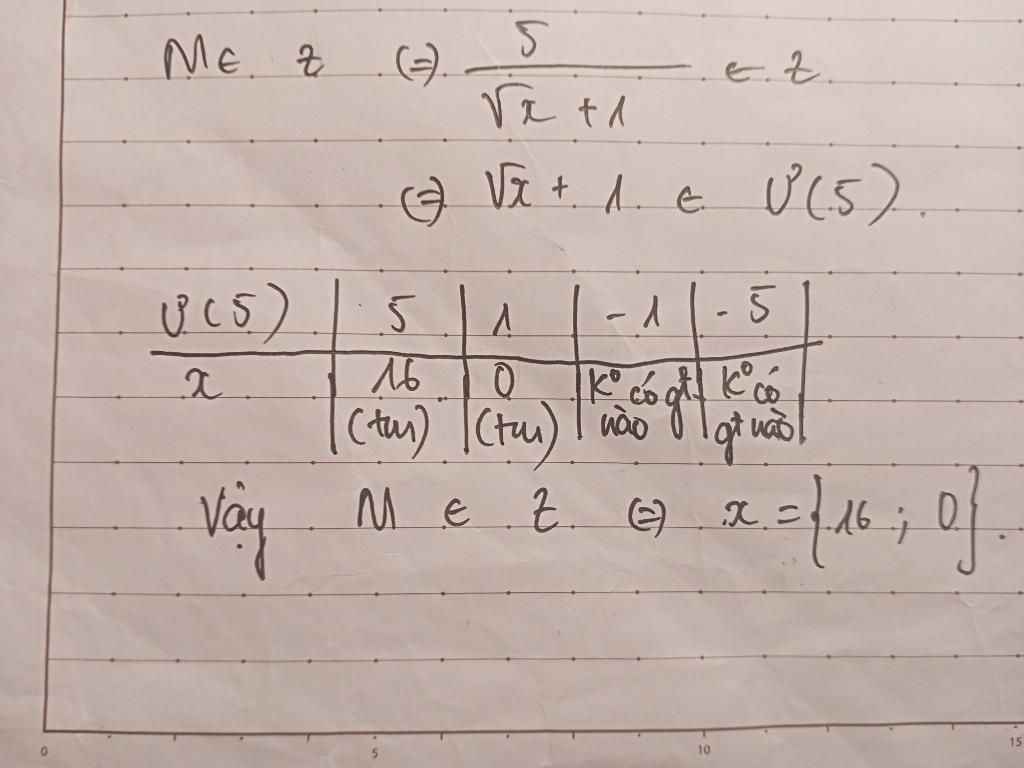 M ∈ Z ⇔ 5/(√x + 1) ∈ Z
⇔ √x + 1 ∈ Ư(5).
Ư(5) | 5 | 1 | -1 | -5
x | 16 (tm) | 0 (tm) | K° có gt nào | K° có gt nào
Vậy M ∈ Z ⇔ x = {16 ; 0}.
0 5 10 15